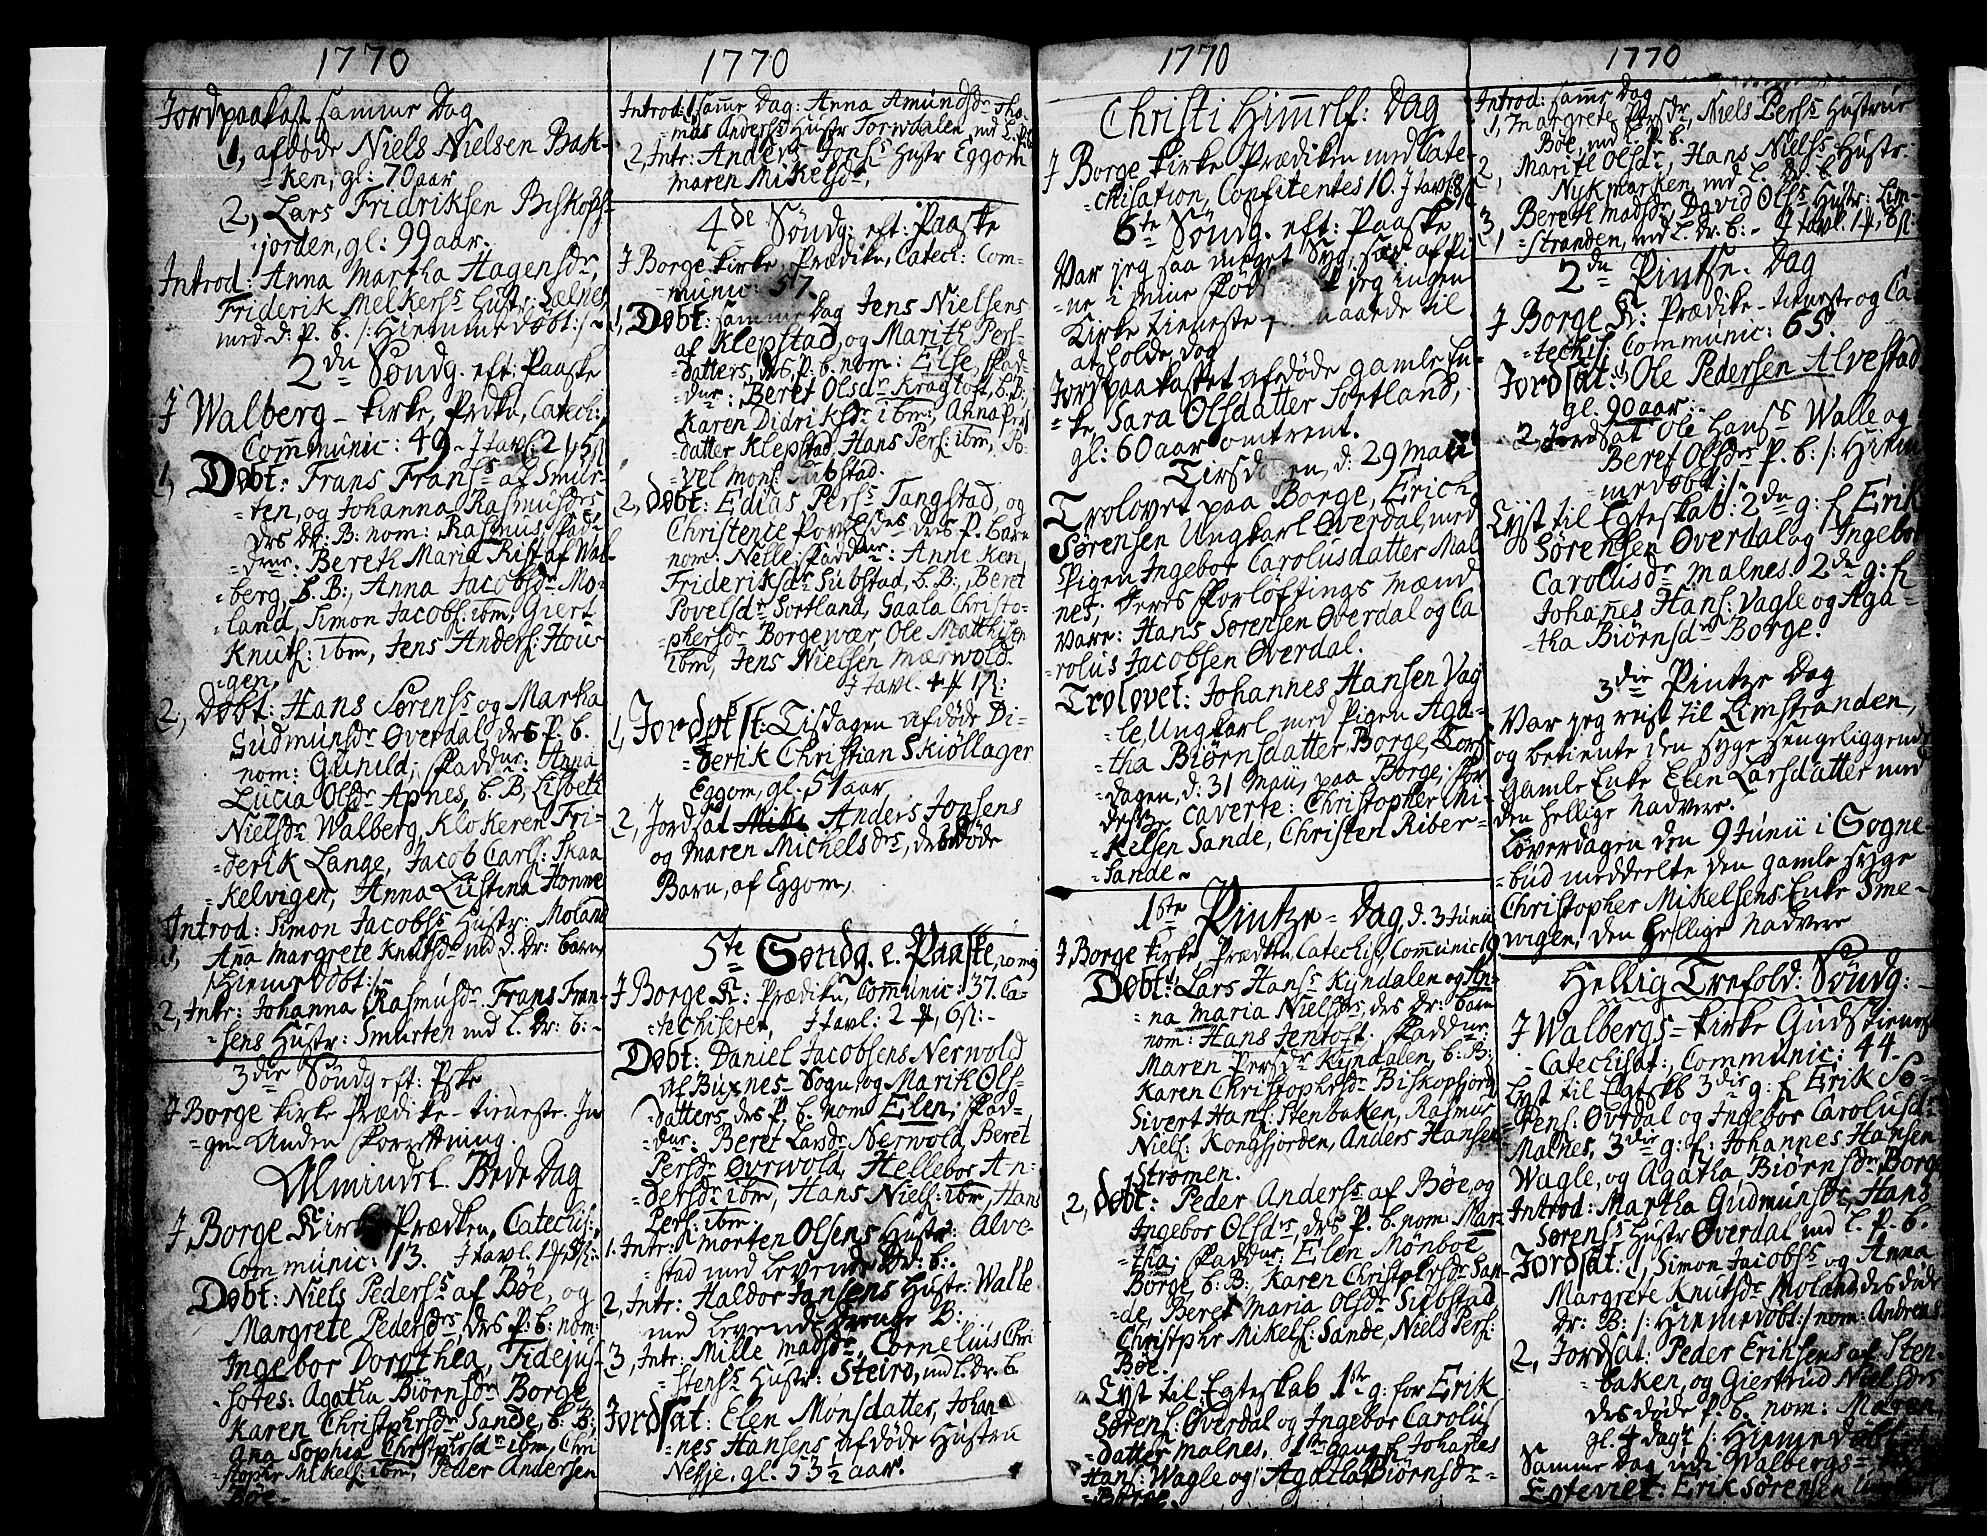 1770
Jordpaakast samme Dag
1, afdøde Niels Nielsen Bak-
=ken, gl: 70 aar
2, Lars Fridriksen Biskops-
jorden, gl: 99 aar.
Introd: Anna Martha Hagensdr,
Friderik Melkers: Hustr: Sælnes
med d: P. b. /: Hiemmedøbt :/
2den Søndg. eft: Paaske
J Walberg - kirke, Catech:
Communic: 49 - J tavl: 2
1, Døbt: Frans Frans: af Smur-
=ten, og Johanna Rasmusdrs
drs dr: B: nom: Rasmus, fad-
=drne: Bereth Maria Rist af Wal-
=berg, b. B:, Anna Jacobsdr Mo-
=land, Simon Jacobs: ibm, Giert
Knuts: ibm, Jens Anders: Hou-
igen,
2, Døbt: Hans Sørens: og Martha
Gudmunsdr Øverdal, des P. b.
nom: Gunild; Faddur: Anna
Lucia Olsdr Apnes, b. B, Lisbeth
Nielsdr Walberg, Klokeren Fri-
=derik Lange, Jacob Carls: Skaa
=kelvigen, Anna Lustina Honne
Introd: Simon Jacobs: Hustr: Moland
1, Ana Margrete Knutsdr md d. dr: barn
/: Hiemedøbt :/
2, Intr: Johanna Rasmusdr Frans Fran-
=sens Hustr: Smurten md l. dr: b:-
3die Søndg eft: Pske
J Borge kirke Prædike - tieneste. In
=gen Anden Forretning.
Almindel. Bede Dag
J Borge Kirke Prædken, Catechis:,
Communic: 13.
Døbt: Niels Peders: af Bøe, og
Margrete Pedersdrs, des P. b: nom:
Ingebor Dorothea, Fidejus-
=sores: Agatha Biørnsdr Borge
Karen Christphrsdr Sande, b: B;
Ana Sophia Christphrsdr ibm, Chri
=stopher Mikels: ibm, Peder Andersen
Bøe.
1770
Introd: samme Dag: Anna Amundsdr Tho-
=mas Anders: Hustr Torwdalen, md l.
2, Intr: Anders Jons: Hustr Eggom
Maren Mikelsdr,
4de Søndg: eft: Paaske
J Borge kirke, Prædike, Catech: Com-
=munic: 57.
1, Døbt: samme Dag Jens Nielsens
af Klepstad, og Marith Pers-
=datters, des P. b. nom: Else, Fad-
=dur: Beret Olsdr Kragtoft, b. B:,
Karen Didriksdr ibm:, Anna Pers
datter Klepstad, Hans Pers: ibm, Po-
=vel Mons: Substad.
2, døbt: Edias Pers: Tangstad, og
Christence Povelsdrs des P. barn
nom: Nelle, Faddur: Anne Ken
Frideriksdr Substad, b. B:, Beret
Povelsdr Sortland, Gaala Christo-
=phersdr Borgewær, Ole Matthisen
ibm, Jens Nielsen Mærwold.
J tavl.
1, Jordpkst: Tisdagen afdøde Di-
=derik Christian Skiøllager
Eggom, gl. 51 aar
2, Jordsat Anders Jonsens
og Maren Michelsdrs, des døde
Barn, af Eggom,
5te Søndg. e. Paaske,
J Borge K: Prædike, Communic: 37. Ca-
=techiseret, J tavl: 2
Døbt: Daniel Jacobsens Nerwold
af Buxnes-Sogn og Marith Ols-
datters, des P. b. nom Elen; Fad-
=dur: Beret Larsdr Nerwold, Beret
Persdr Øvrwold, Hellebor An-
=dersdr ibm, Hans Niels: ibm, Hans
Pers: ibm.
1. Intr: Morten Olsens Hustr: Alve-
=stad med levende dr: b:.
2, Intr: Haldor Jansens Hustr: Walle
md levende Drenge B:
3, Intr: Mille Madsdr, Cornelius Chri
=stens: Hustr: Steiro, md l. dr. b
Jordsat: Elen Monsdatter, Johan
=nes Hansens afdøde Hustru
Nesje, gl. 53 1/2 aar.
1770
Christi Himmelf: Dag
J Borge kirke Prædiken med Cate-
=chisation, Confitentes 10.
6te Søndg. eft: Paaske
Var jeg saa meget Syg, sær af Pi-
=ne i mine jeg ingen
Kirke tieneste formaaede til
at holde, dog
Jordpaakastet afdøde gamle En-
=ke, Sara Olsdatter Sortland,
gl: 60 aar omtrent.
Tirsdagen, d: 29 Maii
Trolovet paa Borge, Erich
Sørensen Ungkarl Øverdal, med
Pigen Ingebor Carolusdatter Mal
nes; deres Forløftings Mænd
vare: Hans Sørensen Øverdal og Ca
=rolus Jacobsen Øverdal.
Trolovet: Johannes Hansen Vag
=le, Ungkarl med Pigen Aga-
=tha Biørnsdatter, Borge, Tors
=dagen, d: 31 Maii, paa Borge; for
desse caverte: Christopher Mi-
=kelsen Sande, Christen Riber-
=Sande~
1ste Pintze = Dag, d. 3 Junii
J Borge kirke, Prædken, Catechis, Communic:
Døbt: Lars Hans: Kyndalen og An-
na Maria Nielsdrs, des dr: barn
nom: Hans Jentoft. Faddur:
Maren Persdr Kyndalen, b: B:
Karen Christophersdr Biskopsjord
Sivert Hans: Stenbaken, Rasmus
Niels: Kongsjorden, Anders Hansen
Strømen.
2, døbt: Peder Anders: af Bøe, og
Ingebor Olsdrs, des P. b. nom: Mar-
=tha; Faddur: Elen Mønboe
Borge, b: B: Karen Christphrsdr San-
=de, Beret Maria Olsdr Substad
Christpher Mikels: Sande, Niels Pers:
Bøe
Lyst til Egteskab 1ste g: for Erik
Sørens: Øverdal og Ingebor Carolus
=datter Malnes, 1ste gang f. Johanes
Hans: Wagle og Agatha Biørnsdr-
=Borge.
1770
Introd: samme Dag
1, Margrete Persdr, Niels Pers: Hustrue
Bøe, md l. P. b.
2, Marith Olsdr, Hans Niels: Hustr:
Nykmarken, md l. dr. b.
3, Bereth Madsdr, David Ols: Hustr: Lim-
=stranden, md l. dr. b:-
2den Pintse. Dag
J Borge K: Prædike - tieneste og Ca-
=techis, Communic: 65.
Jordsat: Ole Pedersen Alvestad
gl. 90 aar:-
2, Jordsat Ole Hans: Walle og
Beret Olsdrs P. b: /: Hiem
=medøbt :/
Lyst til Egteskab: 2den g: f Erik
Sørensen Øverdal og Ingebor
Carolusdr Malnes. 2den g: f
Johannes Hans: Vagle og Aga-
=tha Biørnsdr Borge.
3die Pintze Dag
Var jeg reist til Limstranden,
og betiente den syge sengeliggende
Gamle Enke Elen Larsdatter med
den hellige Nadvere.
Løverdagen den 9 Junii i Sogne-
=bud meddeelte den gamle syge
Christopher Mikelsens Enke Sme-
vigen, den hellige Nadvere
Hellig Trefold: Søndg:
J Walbergs - kirke Gudstieneste
Catechisat:, Communic: 44.
Lyst til Egteskb 3die g: f Erik Sø-
=rens: Øverdal og Ingebor Carolusdr
Malnes, 3die g: f: Johannes Hansen
Wagle, og Agatha Biørnsdr Borge
Introd: Martha Gudmunsdr Hans
Sørens: Hustr Øverdal md l. P. b.
Jordsat: 1, Simon Jacobs: og Anna
Margrete Knutsdr Moland, des døde
dr: B: /: Hiemedøbt :/ nom: Andreas
2, Jordsat: Peder Eriksens af Sten-
=baken, og Giertrud Nielsdrs
des døde P. b. nom: Maren,
gl. 4 dage /: Hiemedøbt :/
Samme Dag udi Walbergs=
Egteviet: Erik Sørensen